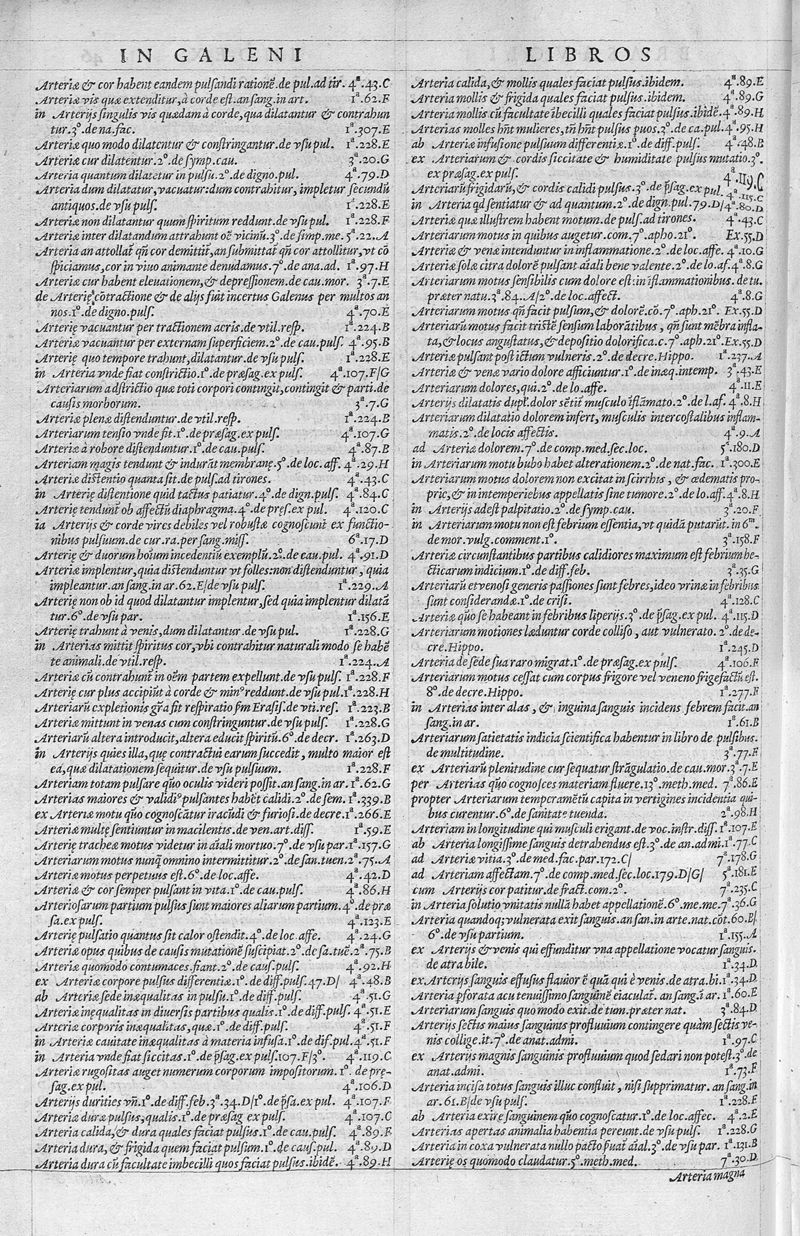 IN GALENI
Arteriæ & cor habent eandem pulsandi rationē.de pul.ad tir. 4ª.43.C
Arteriæ vis quæ extenditur,à corde est.an sang.in art. 1ª.62.F
in Arterijs singulis vis quædam à corde,qua dilatantur & contrahun
tur.3º.de na.fac. 1ª.307.E
Arteriæ quo modo dilatentur & constringantur.de vsu pul. 1ª.228.E
Arteriæ cur dilatentur.2º.de symp.cau. 3ª.20.G
Arteria quantum dilatetur in pulsu.2º.de digno.pul. 4ª.79.D
Arteria dum dilatatur,vacuatur:dum contrahitur, impletur secundū
antiquos.de vsu puls. 1ª.228.E
Arteriæ non dilatantur quum spiritum reddunt.de vsu pul. 1ª.228.F
Arteriæ inter dilatandum attrahunt oē vicinū.3º.de simp.me. 5ª.22.A
Arteria an attollat qñ cor demittit,an submittat qñ cor attollitur,vt cō
spiciamus,cor in viuo animante denudamus.7º.de ana.ad. 1ª.97.H
Arteriæ cur habent eleuationem,& depressionem.de cau.mor. 3ª.7.E
de Arterię cōtractione & de alijs fuit incertus Galenus per multos an
nos.1º.de digno.puls. 4ª.70.E
Arterię vacuantur per tractionem aeris.de vtil.resp. 1ª.224.B
Arteriæ vacuantur per externam superficiem.2º.de cau.puls. 4ª.95.B
Arterię quo tempore trahunt,dilatantur.de vsu puls. 1ª.228.E
in Arteria vnde fiat constrictio.1º.de præsag.ex puls. 4ª.107.F/G
Arteriarum adstrictio quæ toti corpori contingit,contingit & parti.de
causis morborum. 3ª.7.G
Arteriæ plenæ distenduntur.de vtil.resp. 1ª.224.B
Arteriarum tensio vnde fit.1º.de præsag.ex puls. 4ª.107.G
Arteriæ à robore distenduntur.1º.de cau.puls. 4ª.87.B
Arteriam magis tendunt & indurāt membranę.5º.de loc.aff. 4ª.29.H
Arteriæ distentio quanta fit.de puls.ad tirones. 4ª.43.C
in Arterię distentione quid tactus patiatur.4º.de dign.puls. 4ª.84.C
Arterię tendunt̄ ob affectū diaphragma.4º.de pręs.ex pul. 4ª.120.C
ia Arterijs & corde vires debiles vel robustæ cognoscunt̄ ex functio-
nibus pulsuum.de cur.ra.per sang.miss. 6ª.17.D
Arterię & duorum hoium incedentiū exemplū.2º.de cau.pul. 4ª.91.D
Arteriæ implentur,quia distenduntur vt folles:non distenduntur, quia
impleantur.an sang.in ar.62.E/de vsu puls. 1ª.229.A
Arterię non ob id quod dilatantur implentur,sed quia implentur dilatā
tur.6º.de vsu par. 1ª.156.E
Arterię trahunt à venis,dum dilatantur.de vsu pul. 1ª.228.G
in Arterias mittit spiritus cor,vbi contrahitur naturali modo se habē
te animali.de vtil.resp. 1ª.224.A
Arteriæ cū contrahunt̄ in oēm partem expellunt.de vsu puls. 1ª.228.F
Arterię cur plus accipiūt à corde & minº reddunt.de vsu pul.1ª.228.H
Arteriarū expletionis grā fit respiratio sm Erasis.de vti.res. 1ª.223.B
Arteriæ mittunt in venas cum constringuntur.de vsu puls. 1ª.228.G
Arteriarū altera introducit,altera educit spiritū.6º.de decr. 1ª.263.D
in Arterijs quies illa,quę contractui earum succedit, multo maior est
ea,quæ dilatationem sequitur.de vsu pulsuum. 1ª.228.F
Arteriam totam pulsare quō oculis videri possit.an sang.in ar.1ª.62.G
Arterias maiores & validiº pulsantes habēt calidi.2º.de sem.1ª.339.B
ex Arteriæ motu quō cognoscātur iracūdi & furiosi.de decre.1ª.266.E
Arteriæ multę sentiuntur in macilentis.de ven.art.diss. 1ª.59.E
Arterię tracheæ motus videtur in aīali mortuo.7º.de vsu par.1ª.157.G
Arteriarum motus nunq̄ omnino intermittitur.2º.de san.tuen.2ª.75.A
Arteriæ motus perpetuus est.6º.de loc.affe. 4ª.42.D
Arteriæ & cor semper pulsant in vita.1º.de cau.puls. 4ª.86.H
Arteriosarum partium pulsus sunt maiores aliarum partium.4º.de præ
sa.ex puls. 4ª.123.E
Arterię pulsatio quantus sit calor ostendit.4º.de loc.affe. 4ª.24.G
Arteriæ opus quibus de causis mutationē suscipiat.2º.de sa.tuē.2ª.75.B
Arteriæ quomodo contumaces.fiant.2º.de caus.puls. 4ª.92.H
ex Arteriæ corpore pulsus differentiæ.1º.de diff.puls.47.D/ 4ª.48.B
ab Arteriæ sede inæqualitas in pulsu.1º.de diff.puls. 4ª.51.G
Arteriæ inęqualitas in diuersis partibus qualis.1º.de diff.puls. 4ª.51.E
Arteriæ corporis inæqualitas,quæ.1º.de diff.puls. 4ª.51.F
in Arteriæ cauitate inæqualitas à materia infusa.1º.de dif.pul.4ª.51.F
in Arteria vnde fiat siccitas.1º.de p̄sag.ex puls.107.F/3º. 4ª.119.C
Arteriæ rugositas auget numerum corporum impositorum.1º. de prę-
sag.ex pul. 4ª.106.D
Arterijs durities vñ.1º.de diff.feb.3ª.34.D/1º.de p̄sa.ex pul. 4ª.107.F
Arteriæ duræ pulsus,qualis.1º.de præsag ex puls. 4ª.107.C
Arteria calida,& dura quales faciat pulsus.1º.de cau.puls. 4ª.89.F
Arteria dura,& frigida quem faciat pulsum.1º.de cau.pul. 4ª.89.D
Arteria dura cū facultate imbecilli quos faciat pulsus.ibidē. 4ª.89.H
LIBROS
Arteria calida,& mollis quales faciat pulsus.ibidem. 4ª.89.E
Arteria mollis & frigida quales faciat pulsus.ibidem. 4ª.89.G
Arteria mollis cū facultate ībecilli quales faciat pulsus.ibidē.4ª.89.H
Arterias molles hn̄t mulieres,tn̄ hn̄t pulsus puos.3º.de ca.pul.4ª.95.H
ab Arteriæ infusione pulsuum differentiæ.1º.de diff.puls. 4ª.48.B
ex Arteriarum & cordis siccitate & humiditate pulsus mutatio.3º.
ex præsag.ex puls. 4ª.119.C
Arteriarū frigidarū,& cordis calidi pulsus.3º.de p̄sag.ex pul. 4ª.115.C
in Arteria qd sentiatur & ad quantum.2º.de dign.pul.79.D/4ª.80.D
Arteriæ quæ illustrem habent motum.de puls.ad tirones. 4ª.43.C
Arteriarum motus in quibus augetur.com.7º.apho.21º. Ex.55.D
Arteriæ & venæ intenduntur in inflammatione.2º.de loc.affe. 4ª.10.G
Arteriæ solæ citra dolorē pulsant aīali bene valente.2º.de lo.af.4ª.8.G
Arteriarum motus sensibilis cum dolore est:in īflammationibus.de tu.
præter natu.3ª.84.A/2º.de loc.affect. 4ª.8.G
Arteriarum motus qñ facit pulsum,& dolorē.cō.7º.aph.21º. Ex.55.D
Arteriarū motus facit tristē sensum laborātibus, qñ sunt mēbra infla-
ta,& locus angustatus,& depositio dolorifica.c.7º.aph.21º.Ex.55.D
Arteriæ pulsant post ictum vulneris.2º.de decre.Hippo. 1ª.237.A
Arteriæ & venæ vario dolore afficiuntur.1º.de inæq.intemp. 3ª.43.E
Arteriarum dolores,qui.2º.de lo.affe. 4ª.11.E
Arterijs dilatatis dupl̄.dolor sētit̄ musculo īflāmato.2º.de l.af.4ª.8.H
Arteriarum dilatatio dolorem infert, musculis intercostalibus inflam-
matis.2º.de locis affectis. 4ª.9.A
ad Arteriæ dolorem.7º.de comp.med.sec.loc. 5ª.180.D
in Arteriarum motu bubo habet alterationem.2º.de nat.fac. 1ª.300.E
Arteriarum motus dolorem non excitat in scirrhis, & œdematis pro-
prie,& in intemperiebus appellatis sine tumore.2º.de lo.aff.4ª.8.H
in Arterijs adest palpitatio.2º.de symp.cau. 3ª.20.F
in Arteriarum motu non est febrium essentia,vt quidā putarūt.in 6ᵐ.
de mor.vulg.comment.1º. 3ª.158.F
Arteriæ circunstantibus partibus calidiores maximum est febrium he-
cticarum indicium.1º.de diff.feb. 3ª.35.G
Arteriarū et venosi generis passiones sunt febres,ideo vrinæ in febribus
sunt considerandæ.1º.de crisi. 4ª.128.C
Arteriæ quō se habeant in febribus liperijs.3º.de p̄sag.ex pul. 4ª.115.D
Arteriarum motiones læduntur corde colliso, aut vulnerato. 2º.de de-
cre.Hippo. 1ª.245.D
Arteria de sede sua raro migrat.1º.de præsag.ex puls. 4ª.106.F
Arteriarum motus cessat cum corpus frigore vel veneno frigefactū est.
8º.de decre.Hippo. 1ª.277.F
in Arterias inter alas, & inguina sanguis incidens febrem facit.an
sang.in ar. 1ª.61.B
Arteriarum satietatis indicia scientifica habentur in libro de pulsibus.
de multitudine. 3ª.77.F
ex Arteriarū plenitudine cur sequatur strāgulatio.de cau.mor.3ª.7.E
per Arterias quō cognosces materiam fluere.13º.meth.med. 7ª.86.E
propter Arteriarum temperamētū capita in vertigines incidentia qui-
bus curentur.6º.de sanitate tuenda. 2ª.98.H
Arteriam in longitudine qui musculi erigant.de voc.instr.diss.1ª.107.E
ab Arteria longissime sanguis detrahendus est.3º.de an.admi.1ª.77.C
ad Arteriæ vitia.3º.de med.fac.par.172.C/ 7ª.178.G
ad Arteriam affectam.7º.de comp.med.sec.loc.179.D/G/ 5ª.181.E
cum Arterijs cor patitur.de fract.com.2º. 7ª.235.C
in Arteria solutio vnitatis nullā habet appellationē.6º.me.me.7ª.36.G
Arteria quandoq; vulnerata exit sanguis.an san.in arte.nat.cōt.60.E/
6º.de vsu partium. 1ª.155.A
ex Arterijs & venis qui effunditur vna appellatione vocatur sanguis.
de atra bile. 1ª.34.D
ex Arterijs sanguis effusus flauior ē quā qui è venis.de atra.bi.1ª.34.D
Arteria p̄forata acu tenuissimo sanguinē eiaculat̄. an sang.ī ar. 1ª.60.E
Arteriarum sanguis quo modo exit.de tum.præter nat. 3ª.84.D
Arterijs sectis maius sanguinis profluuium contingere quàm sectis ve-
nis collige.it.7º.de anat.admi. 1ª.97.C
ex Arterijs magnis sanguinis profluuium quod sedari non potest.3º.de
anat.admi. 1ª.73.F
Arteria incisa totus sanguis illuc confluit, nisi supprimatur. an sang.in
ar.61.E/de vsu puls. 1ª.228.E
ab Arteria exire sanguinem quō cognoscatur.1º.de loc.affec. 4ª.2.E
Arterias apertas animalia habentia pereunt.de vsu puls. 1ª.228.G
Arteria in coxa vulnerata nullo pacto p̄uat̄ aīal.3º.de vsu par. 1ª.121.B
Arterię os quomodo claudatur.5º.meth.med. 7ª.30.D
Arteria magna